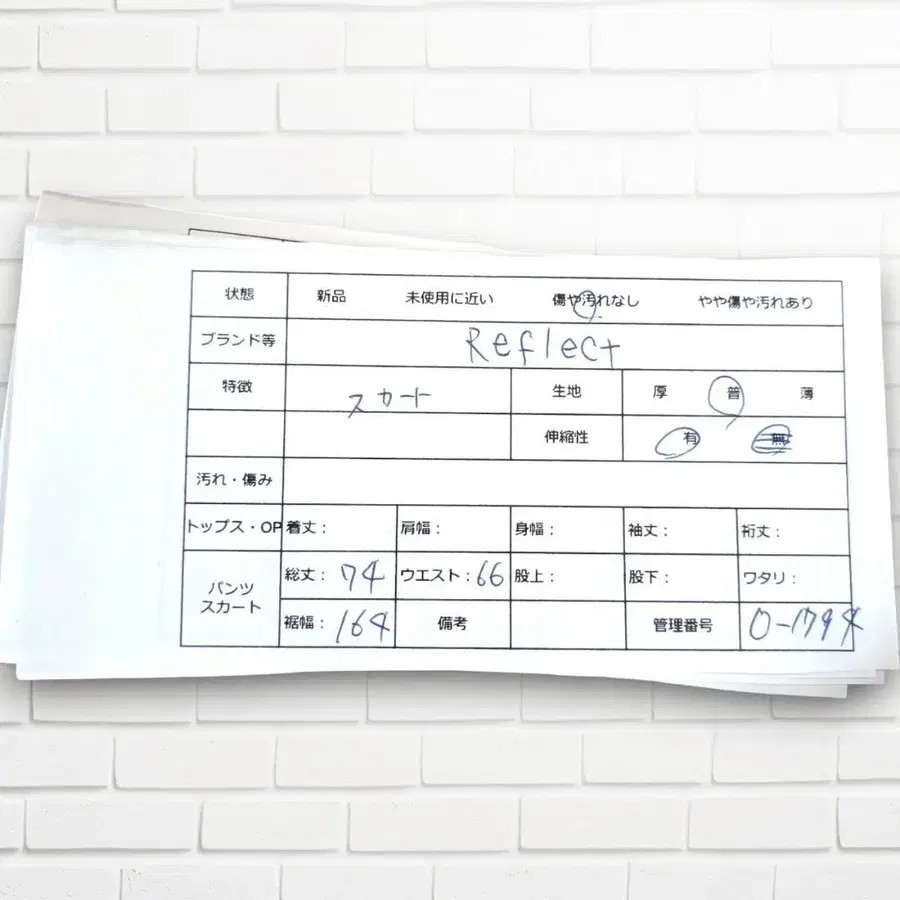 状態 新品 未使用に近い 傷や汚れなし やや傷や汚れあり
ブランド等 Reflect
特徴 スカート 生地 厚 普 薄
伸縮性 有 無
汚れ・傷み
トップス・OP 着丈： 肩幅： 身幅： 袖丈： 裄丈：
パンツ スカート 総丈：74 ウエスト：66 股上： 股下： ワタリ：
裾幅：164 備考 管理番号 0-1794